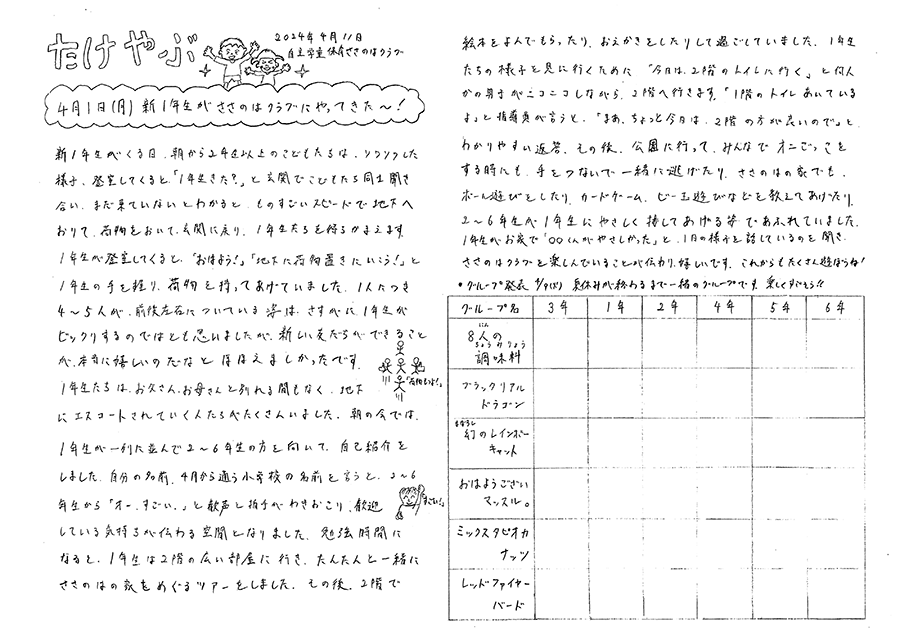 たけやぶ
2024年4月11日
自主学童保育ささのはクラブ
4月1日(月) 新1年生がささのはクラブにやってきた〜!
新1年生がくる日、朝から2年生以上のこどもたちは、ソワソワした
様子、登室してくると「1年生きた?」と玄関でこどもたち同士聞き
合い、まだ来ていないとわかると、ものすごいスピードで地下へ
おりて、荷物をおいて、玄関に戻り、1年生たちを待ちかまえます。
1年生が登室してくると、「おはよう!」「地下に荷物置きにいこう!」と
1年生の手を握り、荷物を持ってあげていました。1人につき
4〜5人が、前後左右についている姿は、さすがに、1年生が
ビックリするのではとも思いましたが、新しい友だちができること
が、本当に嬉しいのだなとほほえましかったです。
「荷物もつよ!」
1年生たちは、お父さん、お母さんと別れる間もなく、地下
にエスコートされていく人たちがたくさんいました。朝の会では、
1年生が一列に並んで2〜6年生の方を向いて、自己紹介を
しました。自分の名前、4月から通う小学校の名前を言うと、2〜6
年生から「オー、すごい。」と歓声と拍手がわきおこり、歓迎
すごい!
している気持ちが伝わる空間となりました。勉強時間に
なると、1年生は2階の広い部屋に行き、たんたんと一緒に
ささのはの家をめぐるツアーをしました。その後、2階で
絵本をよんでもらったり、おえかきをしたりして過ごしていました。1年生
たちの様子を見に行くために「今日は、2階のトイレに行く」と何人
かの男子がニコニコしながら、2階へ行きます。「1階のトイレあいている
よ」と指導員が言うと、「まあ、ちょっと今日は、2階の方が良いので」と、
わかりやすい返答。その後、公園に行って、みんなでオニごっこを
する時にも、手をつないで一緒に逃げたり、ささのはの家でも、
ボール遊びをしたり、カードゲーム、ビー玉遊びなどを教えてあげたり、
2〜6年生が1年生にやさしく接してあげる姿であふれていました。
1年生がお家で「○○くんがやさしかった」と、1日の様子を話しているのを聞き、
ささのはクラブを楽しんでいることが伝わり嬉しいです。これからもたくさん遊ぼうね!
・グループ発表 夏休みが終わるまで一緒のグループです。楽しくすごそう!!
グループ名 3年 1年 2年 4年 5年 6年
8人の
にん
ちょうみりょう
調味料
ブラックリアル
ドラゴン
まぼろし
幻のレインボー
キャット
おはようござい
マッスル。
ミックスタピオカ
ナッツ
レッドファイヤー
バード